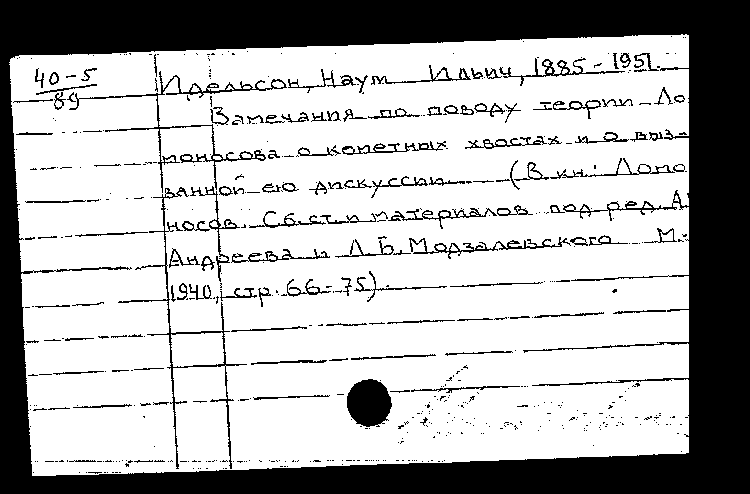 40-5
89
Идельсон, Наум Ильич, 1885-1951.
Замечания по поводу теории Ло
моносова о кометных хвостах и о выз-
ванной ею дискуссии. (В кн.: Ломо
носов. Сб. ст. и материалов под ред. А.
Андреева и Л.Б. Модзалевского М.:
1940, стр. 66-75).